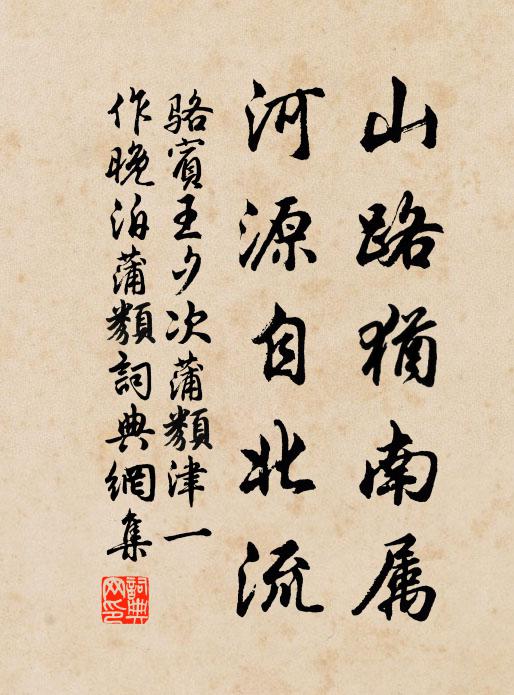 山路猶南属
河源自北流
骆賓王夕次蒲類津一
作晚泊蒲類詞典網集
詞典
网印